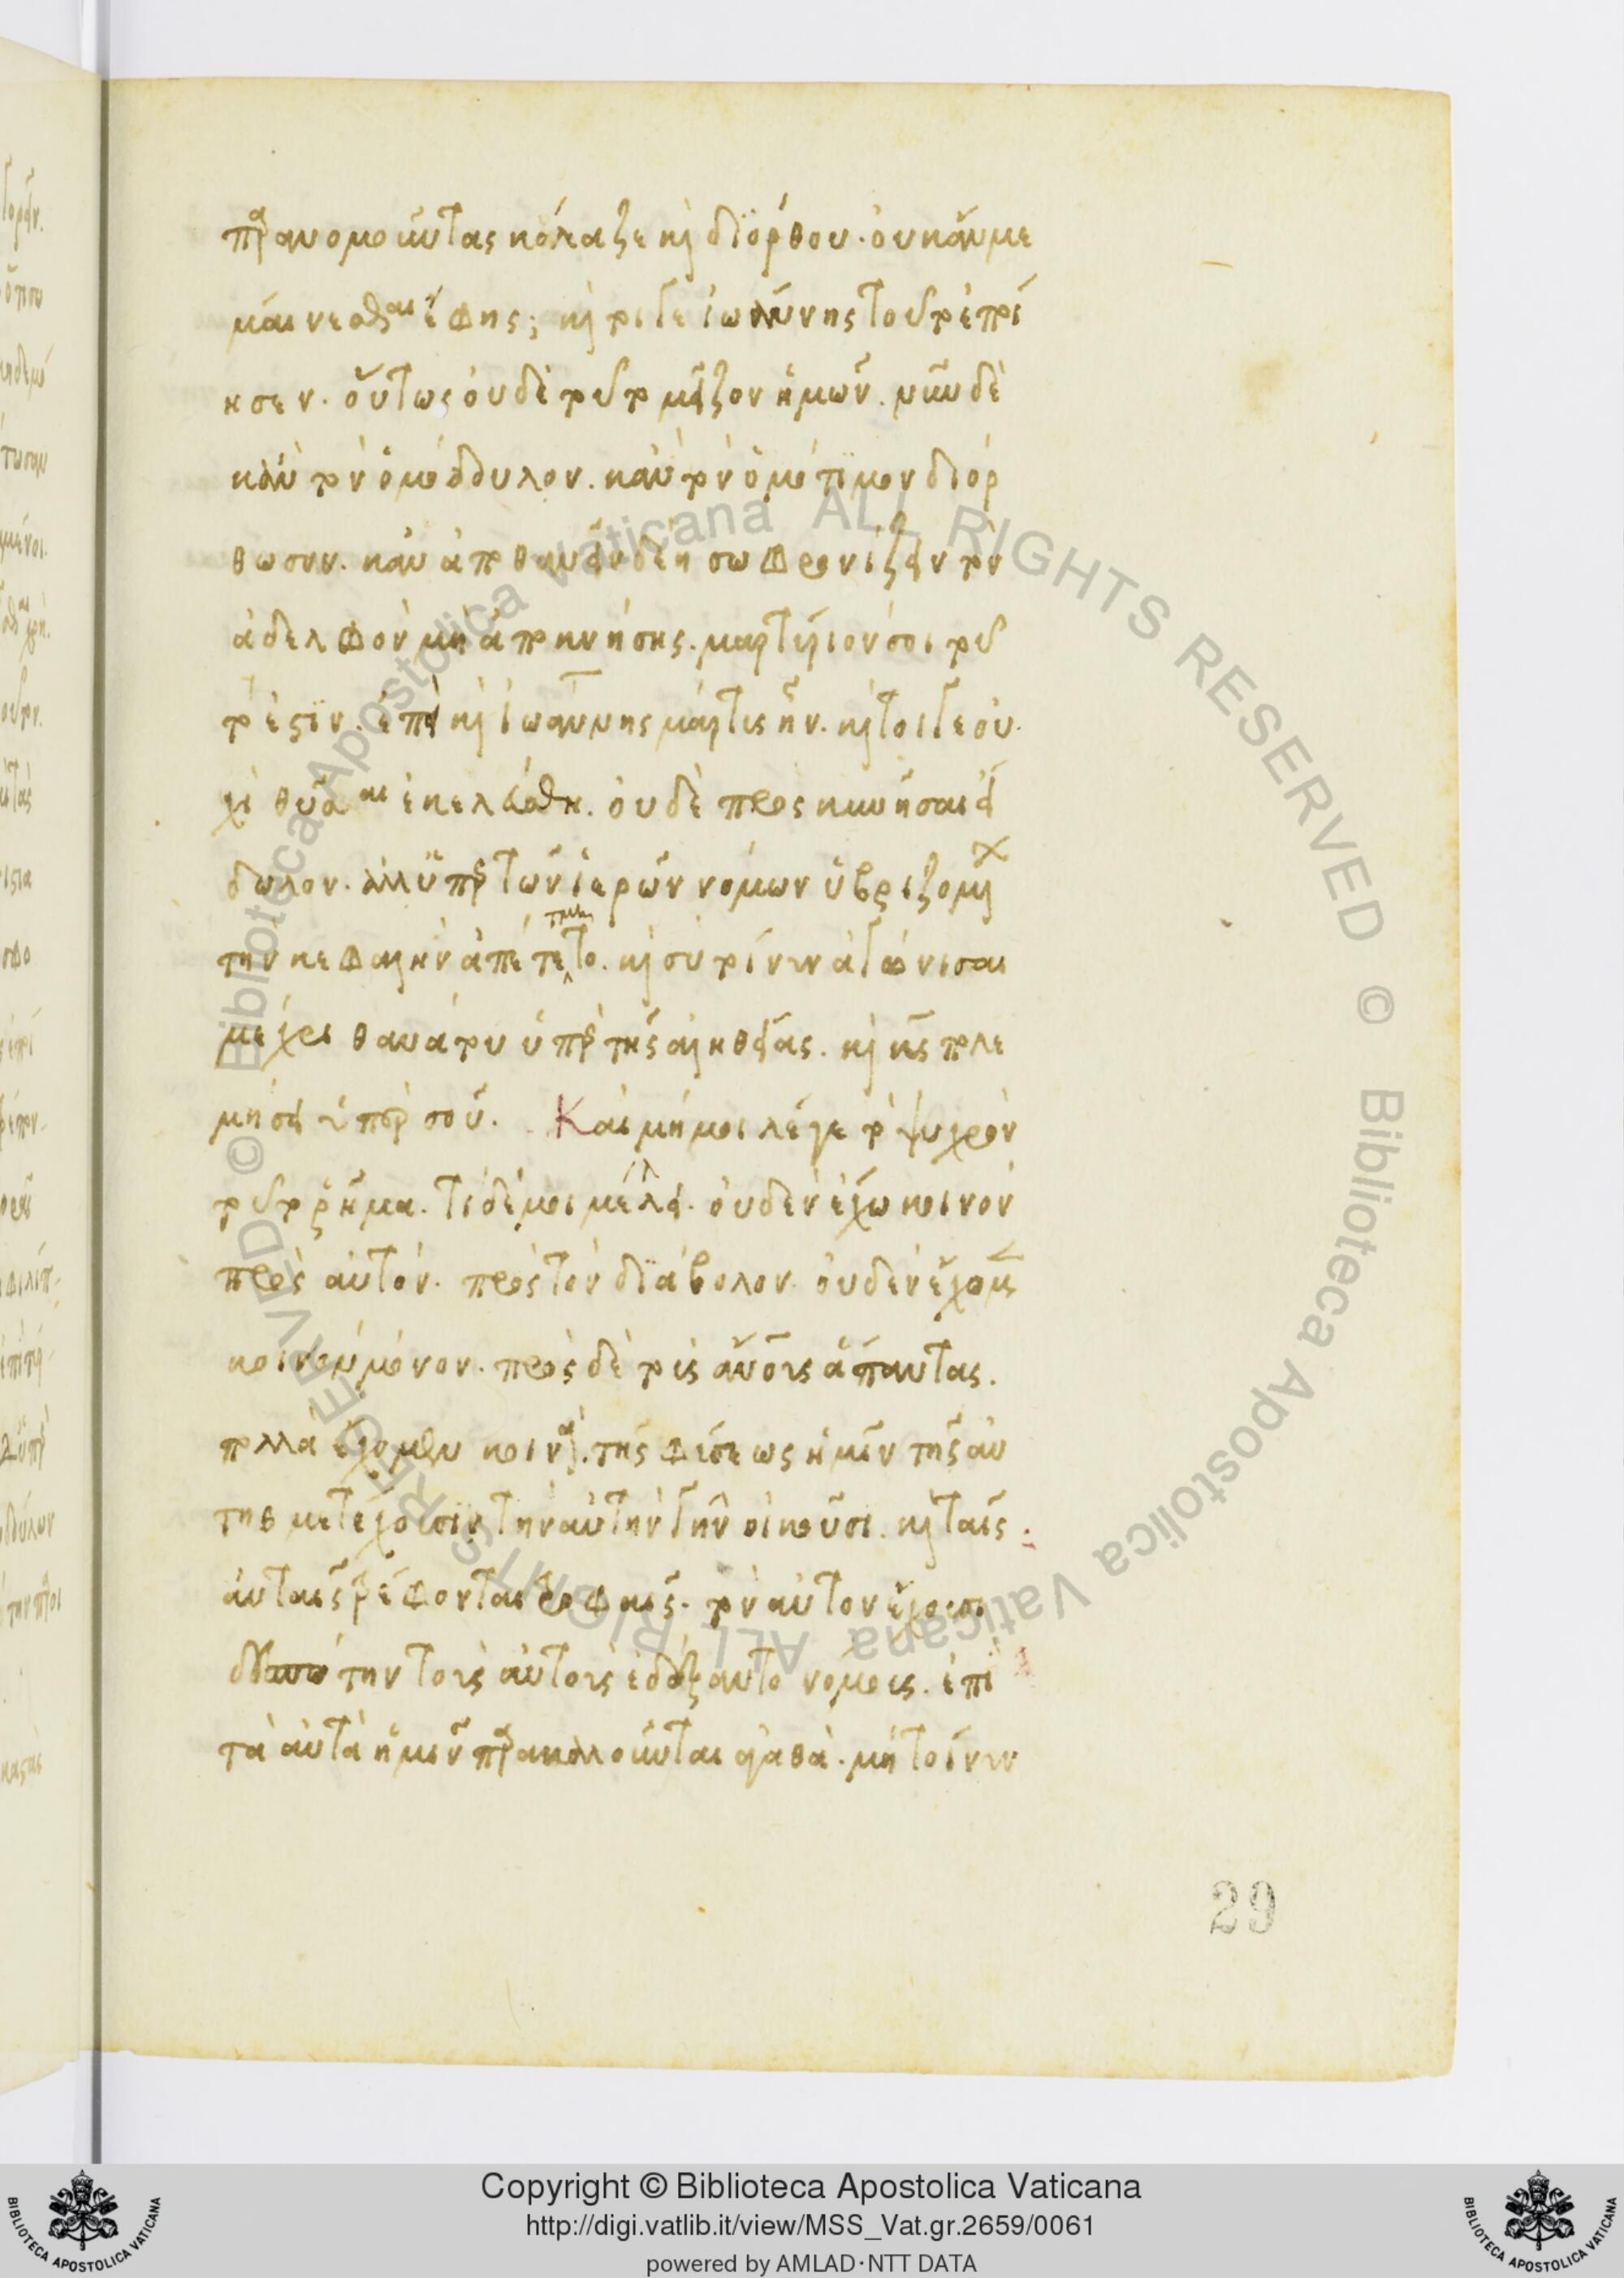 παρανομοῦντας κόλαζε καὶ διόρθου. οὐκ ἄν με
μαίνεσθαι ἔφης; καίτοιγε ἰωάννης τοῦτο ἐποί
ησεν. οὕτως οὐδὲ τοῦτο μεῖζον ἡμῶν. νῦν δὲ
κἂν τὸν ὁμόδουλον. κἂν τὸν ὁμότιμον διόρ
θωσον. κἂν ἀποθανεῖν δέῃ σωφρονίζειν τὸν
ἀδελφὸν μὴ ἀποκνήσῃς. μαρτύριόν σοι τοῦ
τό ἐστιν. ἐπεὶ καὶ ἰωάννης μάρτυς ἦν. καίτοιγε οὐ
χὶ θῦσαι ἐκελεύσθη. οὐδὲ προσκυνῆσαι εἴ
δωλον. ἀλλ' ὑπὲρ τῶν ἱερῶν νόμων ὑβριζομένων
την κεφαλὴν ἀπέτετμητο. καὶ σὺ τοίνυν ἀγώνισαι
μέχρι θανάτου ὑπὲρ τῆς ἀληθείας. καὶ κύριος πολε
μήσει ὑπὲρ σοῦ. Καὶ μή μοι λέγε τὸ ψυχρὸν
τοῦτο ῥῆμα. τί δέ μοι μέλλει. οὐδὲν ἔχω κοινὸν
πρὸς αὐτόν. πρὸς τὸν διάβολον οὐδὲν ἔχομεν
κοινὸν μόνον. πρὸς δὲ τοὺς ἀνθρώπους ἅπαντας.
πολλὰ ἔχομεν κοινά. τῆς φύσεως ἡμῖν τῆς αὐ
τῆς μετέχουσιν τὴν αὐτὴν γῆν οἰκοῦσι. καὶ ταῖς
αὐταῖς τρέφονται τροφαῖς. τὸν αὐτὸν ἔχουσι
δεσπότην τοὺς αὐτοὺς ἐδέξαντο νόμους. ἐπὶ
τὰ αὐτὰ ἡμῖν παρακαλοῦνται ἀγαθά. μὴ τοίνυν
29
Copyright © Biblioteca Apostolica Vaticana
http://digi.vatlib.it/view/MSS_Vat.gr.2659/0061
powered by AMLAD·NTT DATA